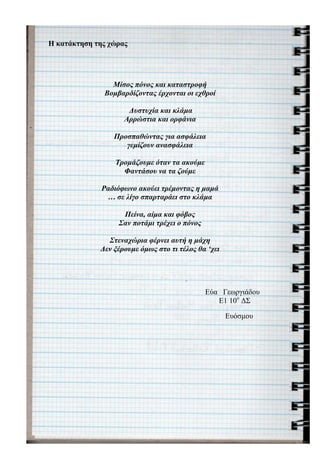 Η κατάκτηση της χώρας
Μίσος πόνος και καταστροφή
Βομβαρδίζοντας έρχονται οι εχθροί
Δυστυχία και κλάμα
Αρρώστια και ορφάνια
Προσπαθώντας για ασφάλεια
γεμίζουν ανασφάλεια
Τρομάζουμε όταν τα ακούμε
Φαντάσου να τα ζούμε
Ραδιόφωνο ακούει τρέμοντας η μαμά
… σε λίγο σπαρταράει στο κλάμα
Πείνα, αίμα και φόβος
Σαν ποτάμι τρέχει ο πόνος
Στεναχώρια φέρνει αυτή η μάχη
Δεν ξέρουμε όμως στο τι τέλος θα ‘χει
Εύα Γεωργιάδου
Ε1 10ο ΔΣ
Ευόσμου